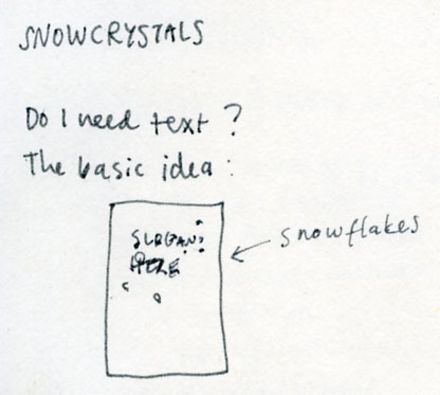 SNOWCRYSTALS
Do I need text ?
The basic idea :
SLOGAN?
HERE
snowflakes